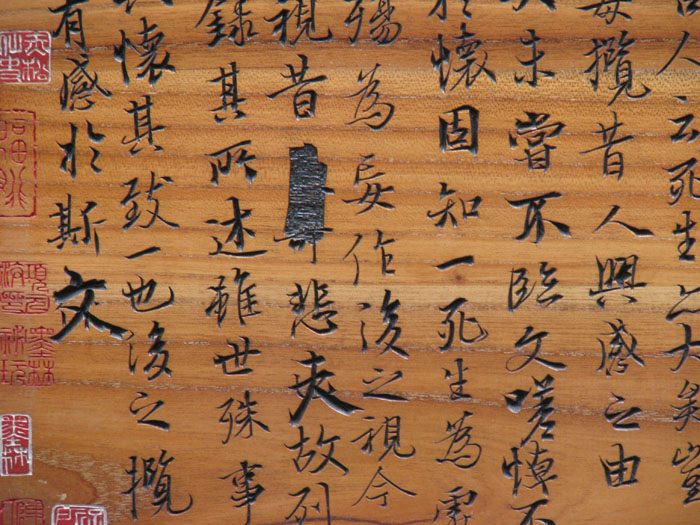 人云死生亦大矣豈
每攬昔人興感之由
未嘗不臨文嗟悼不
於懷固知一死生為虛
殤為妄作後之視今
視昔悲夫故列
錄其所述雖世殊事
懷其致一也後之攬
有感於斯文
墨林